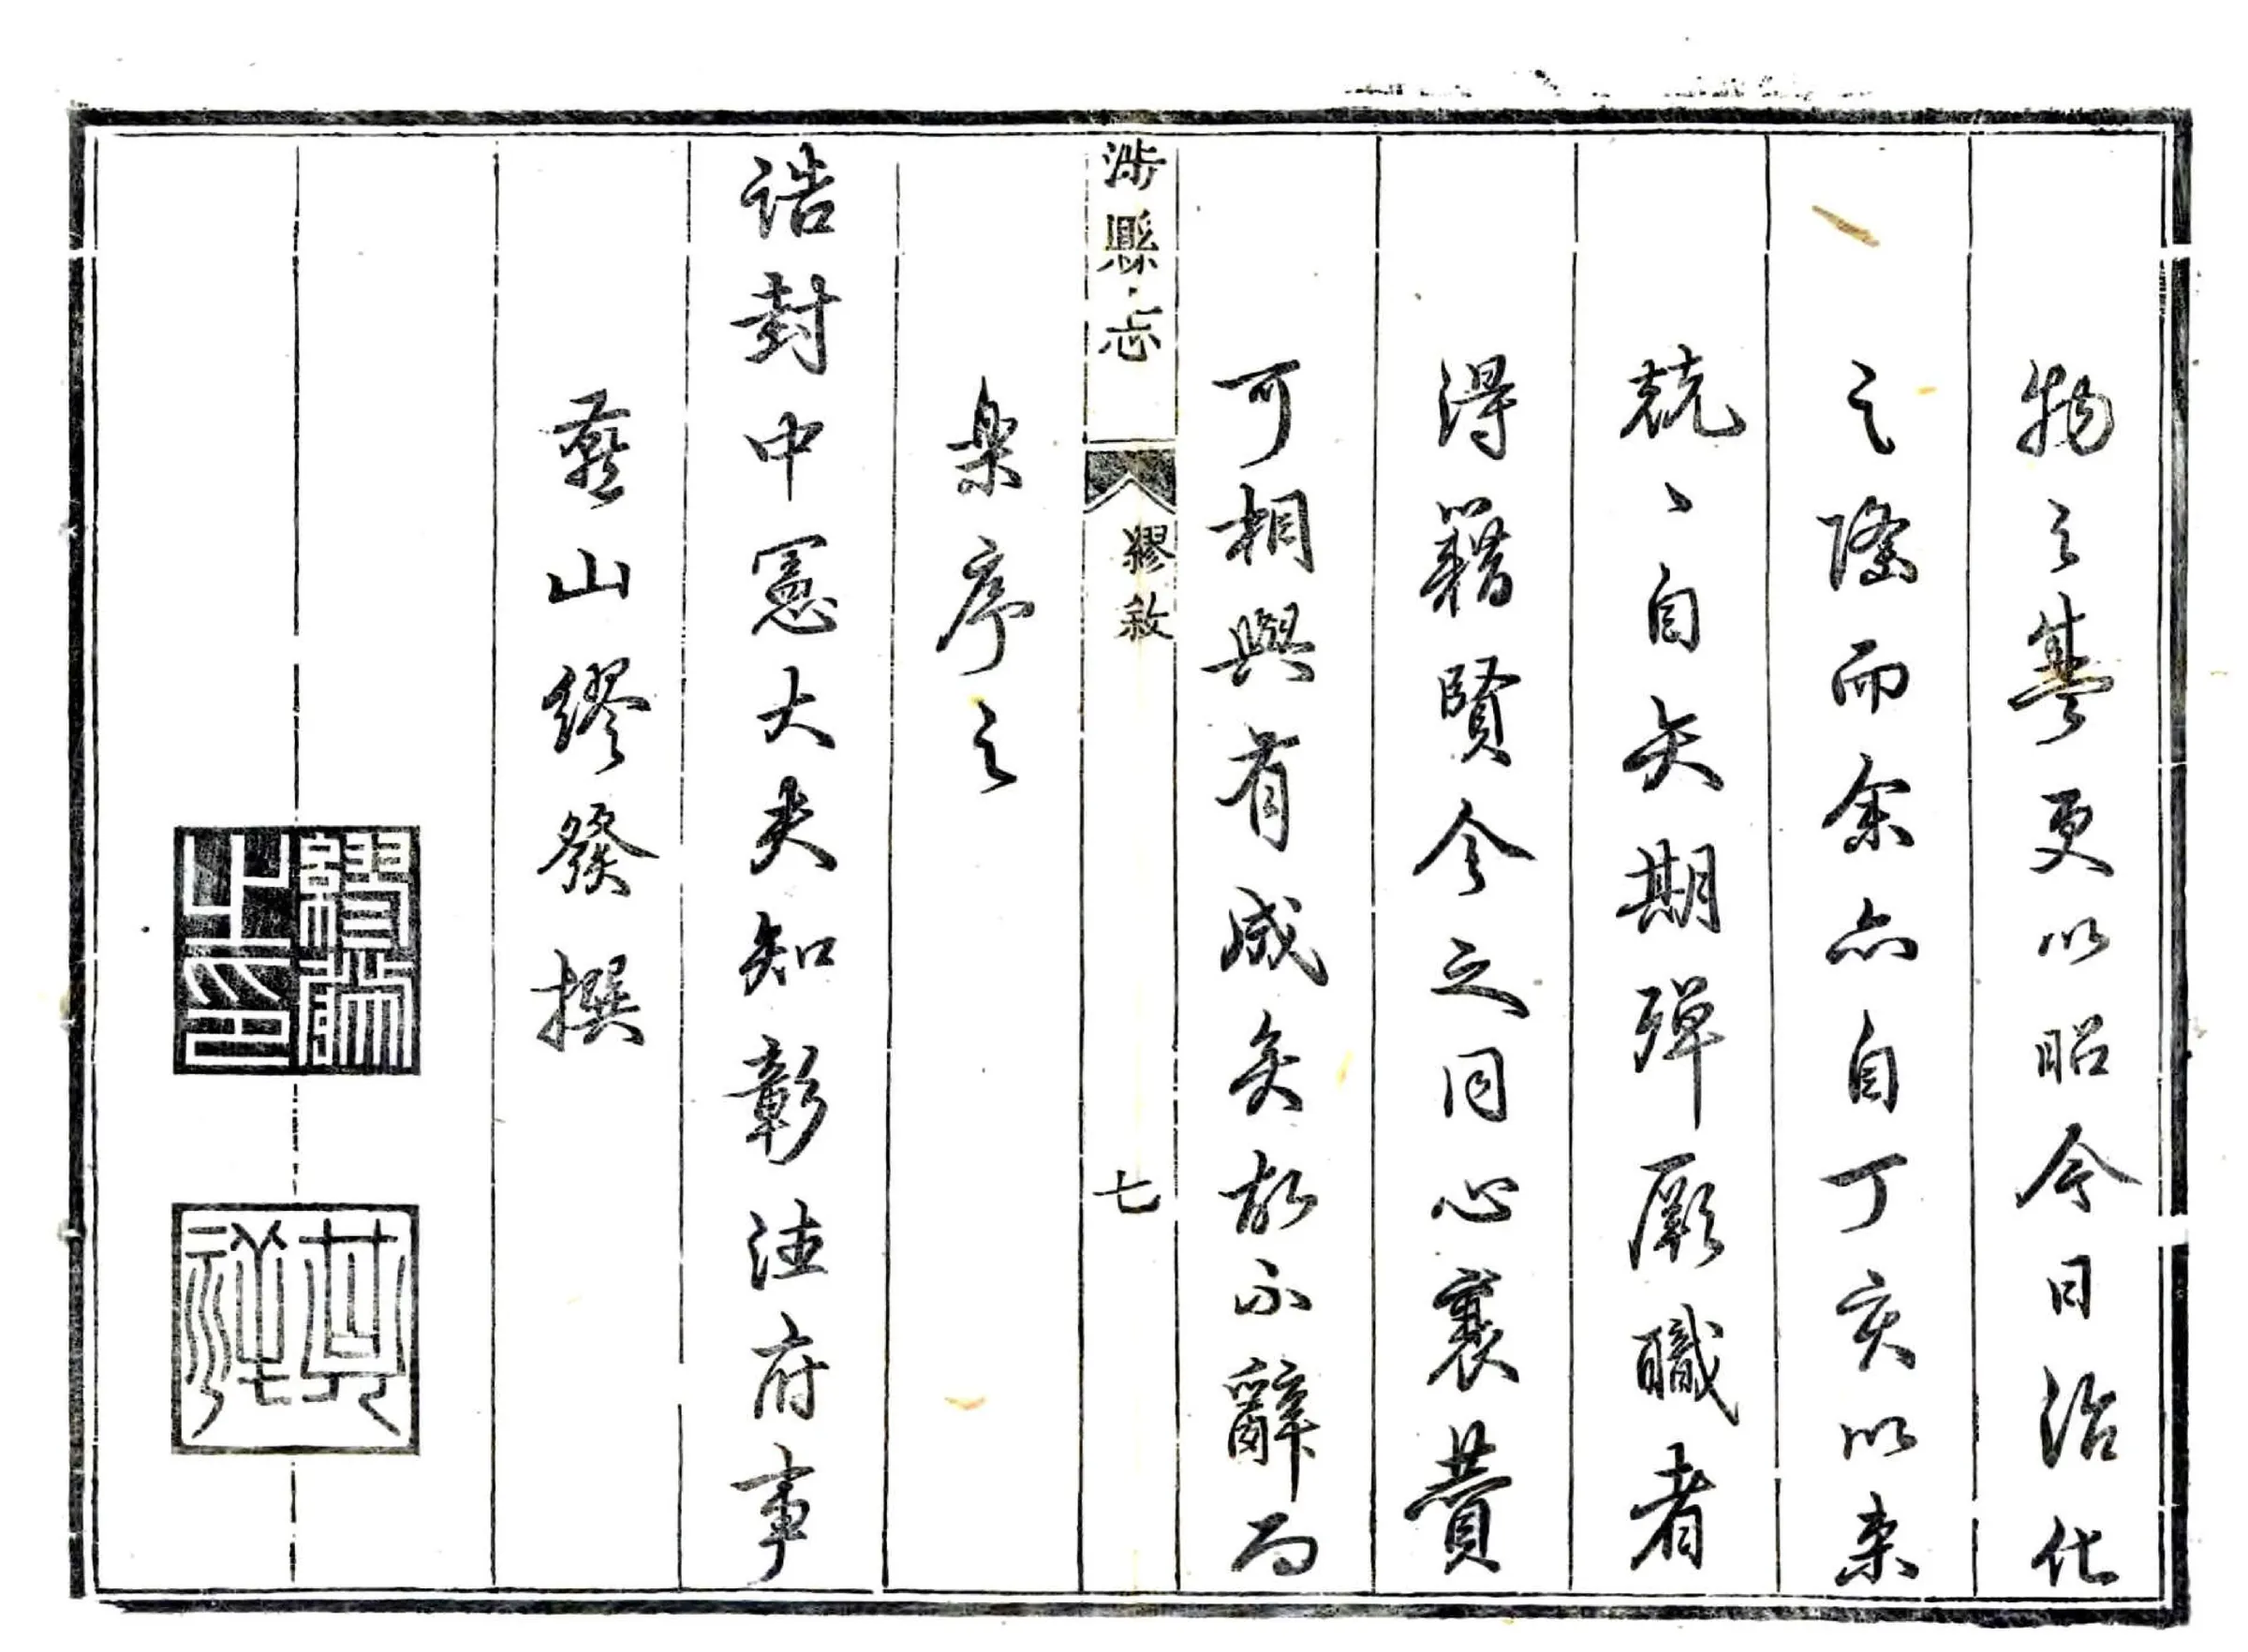 物之華更以昭今日治化
之隆而余亦自丁亥以来
兢〻自矢期殫厥職者
得籍賢令之同心襄賛
可相與有成矣故不辭而
涉縣志 繆敘 七
楽序之
誥封中憲大夫知彰德府事
燕山繆發撰
繆之印